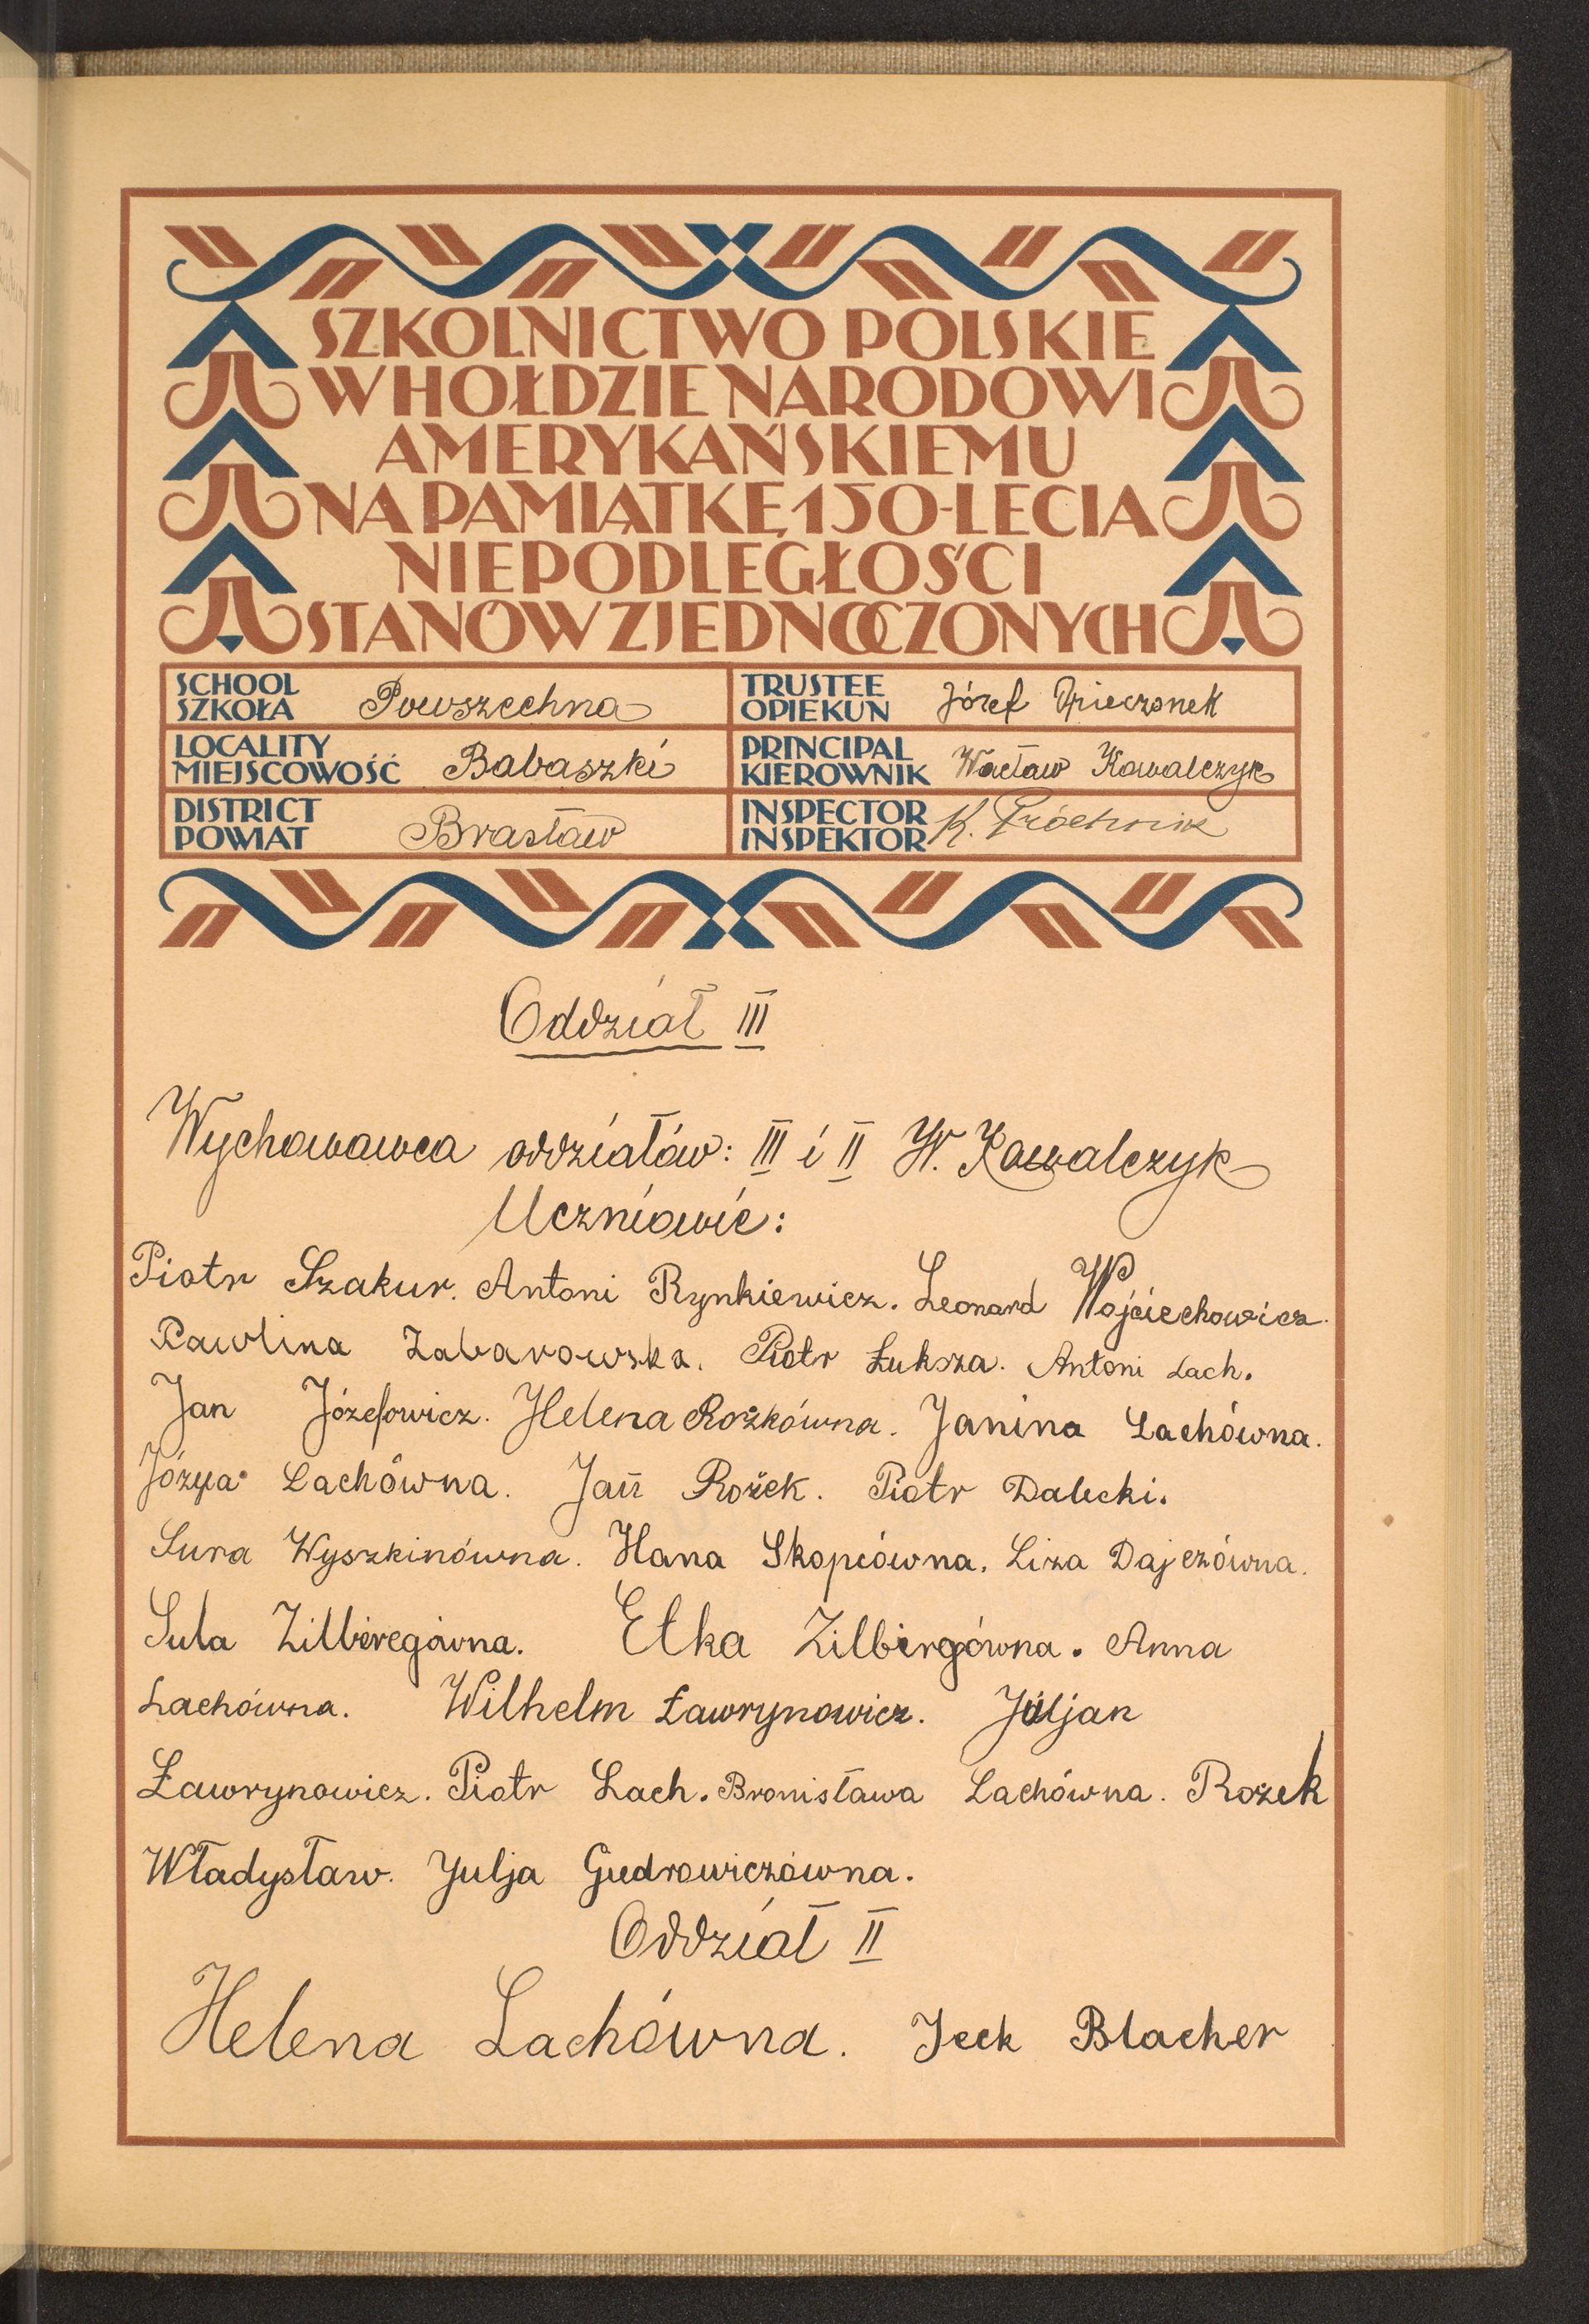 SZKOLNICTWO POLSKIE
W HOŁDZIE NARODOWI
AMERYKAŃSKIEMU
NA PAMIĄTKĘ 150-LECIA
NIEPODLEGŁOŚCI
STANÓW ZJEDNOCZONYCH
SCHOOL
SZKOŁA Powszechna
TRUSTEE
OPIEKUN Józef Opieczonek
LOCALITY
MIEJSCOWOŚĆ Babaszki
PRINCIPAL
KIEROWNIK Wacław Kowalczyk
DISTRICT
POWIAT Brasław
INSPECTOR
INSPEKTOR K. Próchnik
Oddział III
Wychowawca oddziałów: III i II W. Kowalczyk
Uczniowie:
Piotr Szakur. Antoni Rynkiewicz. Leonard Wojciechowicz.
Pawlina Zabarowska. Piotr Łuksza. Antoni Lach.
Jan Józefowicz. Helena Rożkówna. Janina Lachówna.
Lachówna. Jan Rożek. Piotr Dalecki.
Sura Wyszkinówna. Hana Skopcówna. Liza Dajczówna.
Sula Zilberegówna. Ełka Zilbergówna. Anna
Lachówna. Wilhelm Ławrynowicz. Juljan
Ławrynowicz. Piotr Lach. Bronisława Lachówna. Rożek
Władysław. Julja Giedrowiczówna.
Oddział II
Helena Lachówna. Jcek Blacher